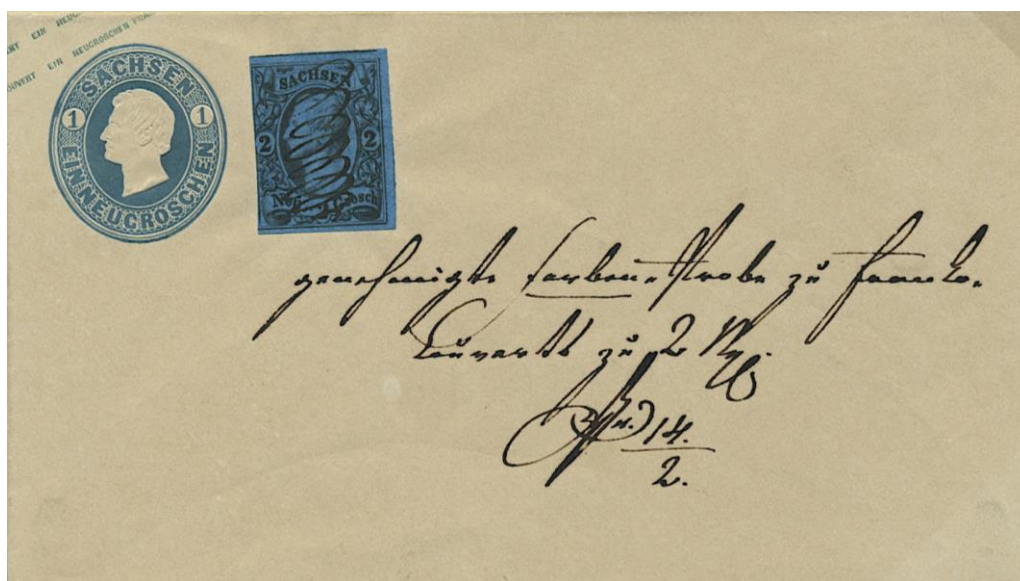 EIN NEUGROSCHEN
COUVERT EIN NEUGROSCHEN
SACHSEN
1 1
EIN NEUGROSCHEN
SACHSEN
2 2
Neu Grosch
genehmigte Farben-Probe zu Franko-
Couverts zu 2 Ngr.
14.
2.